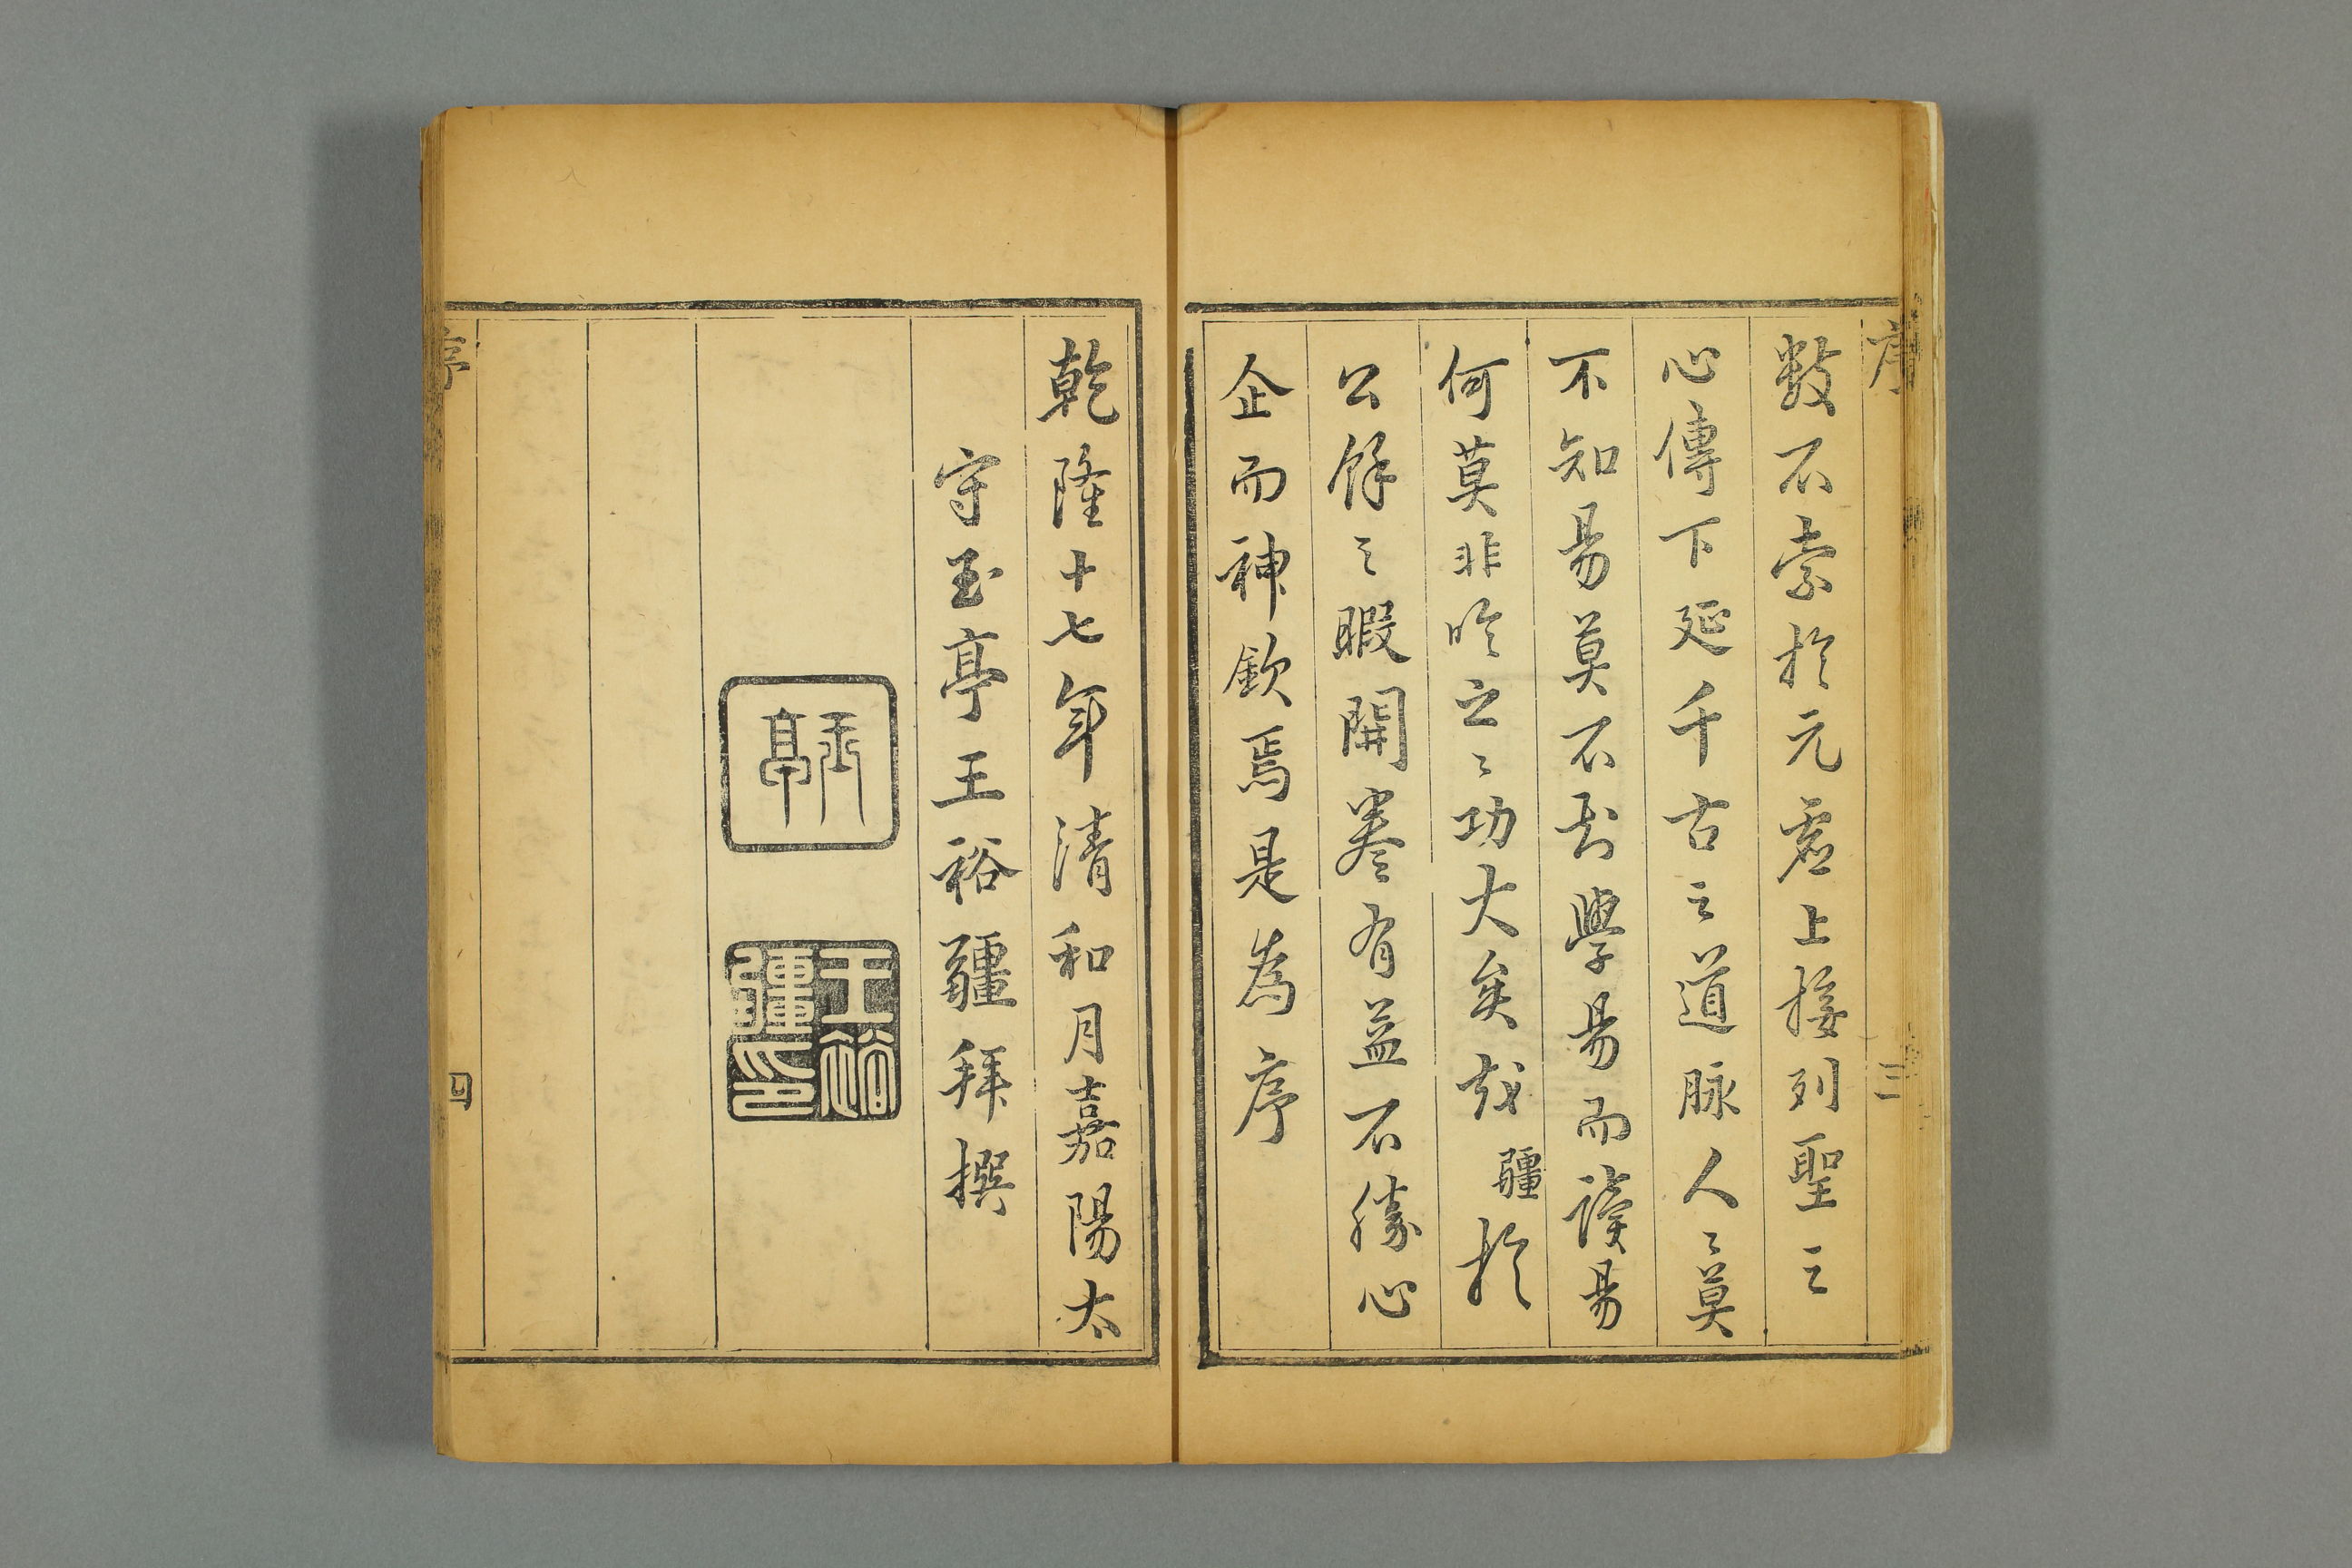 序
三
數不索於元虛上接列聖之
心傳下延千古之道脉人〻莫
不知易莫不學易而讀易
何莫非功大矣哉疆於
公餘之暇開卷有益不勝心
企而神欽焉是為序
乾隆十七年清和月嘉陽太
守玉亭王裕疆拜撰
玉亭
王裕疆印
序
四